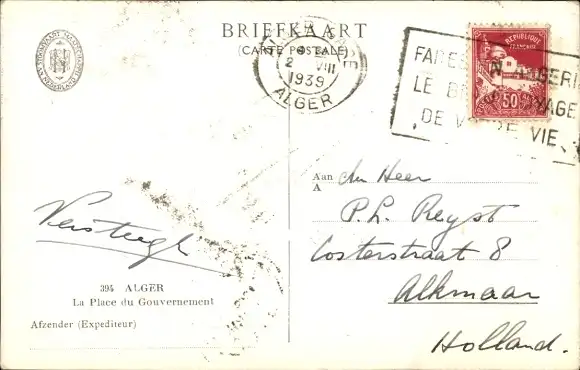 BRIEFKAART
(CARTE POSTALE)
2 VIII
1939
ALGER
REPUBLIQUE
FRANCAISE
50
FAITES EN ALGERIE
LE BEAU VOYAGE
DE VOTRE VIE
Aan
A
den Heer
P.L. Reyst
Oosterstraat 8
Alkmaar
Holland.
Versteegh
394 ALGER
La Place du Gouvernement
Afzender (Expediteur)